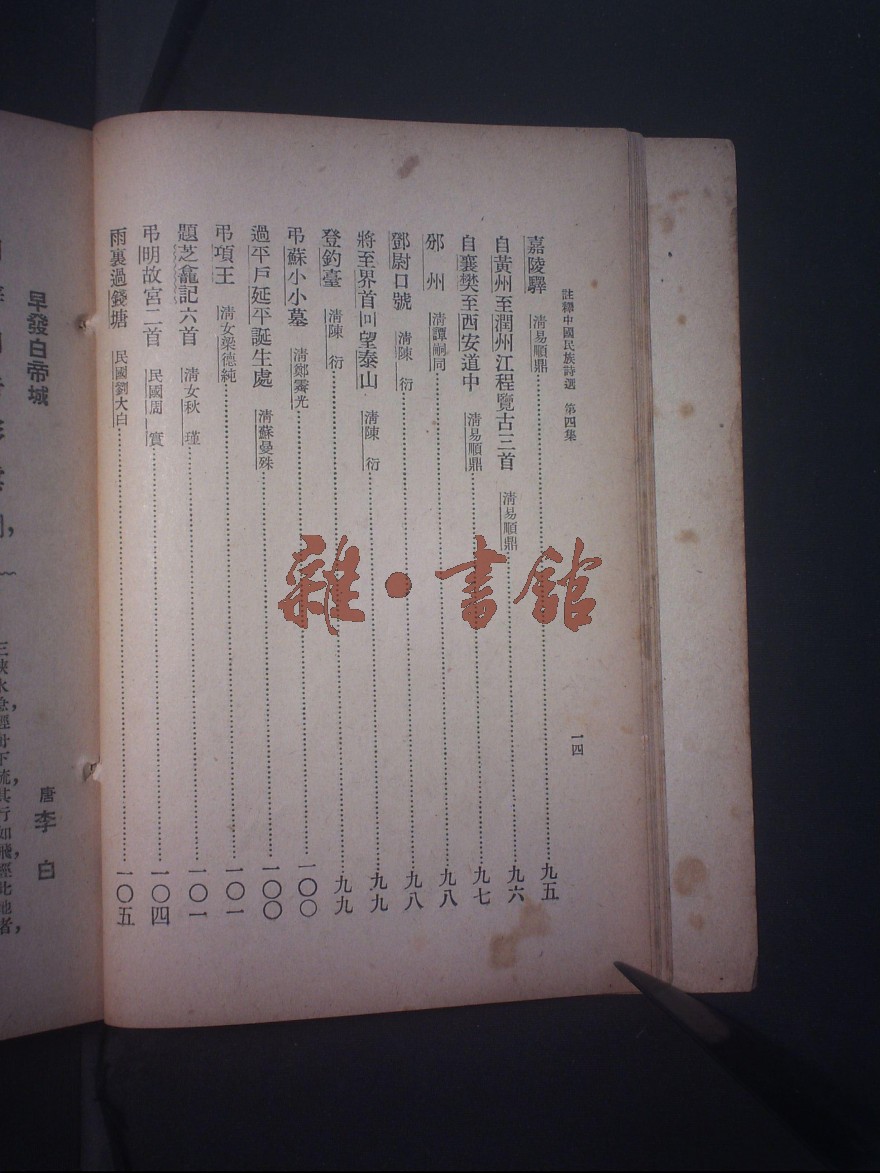 註釋中國民族詩選 第四集
一四
嘉陵驛 清易順鼎 九五
自黃州至潤州江程覽古三首 清易順鼎 九六
自襄樊至西安道中 清易順鼎 九七
邠州 清譚嗣同 九八
鄧尉口號 清陳衍 九八
將至界首回望泰山 清陳衍 九九
登釣臺 清陳衍 九九
弔蘇小小墓 清鄭霽光 一〇〇
過平戶延平誕生處 清蘇曼殊 一〇〇
弔項王 清女梁德純 一〇一
題芝龕記六首 清女秋瑾 一〇一
弔明故宮二首 民國周實 一〇四
雨裏過錢塘 民國劉大白 一〇五
雜·書館
早發白帝城
唐 李白